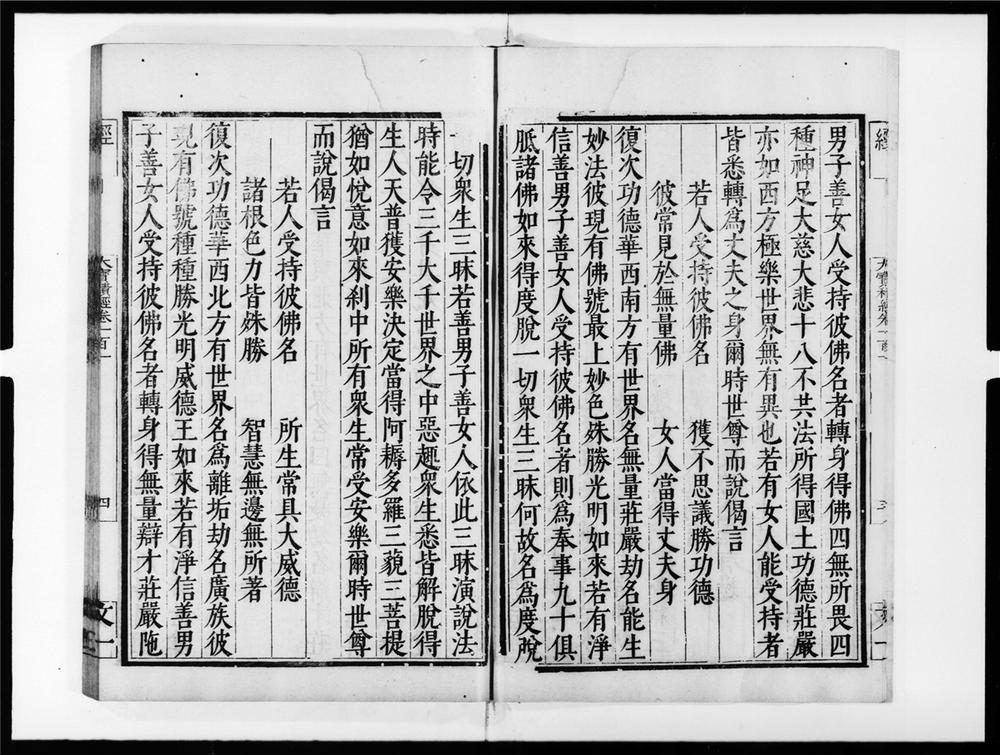 經
大寶積經卷一百一
男子善女人受持彼佛名者轉身得佛四無所畏四
種神足大慈大悲十八不共法所得國土功德莊嚴
亦如西方極樂世界無有異也若有女人能受持者
皆悉轉爲丈夫之身爾時世尊而說偈言
若人受持彼佛名　獲不思議勝功德
彼常見於無量佛　女人當得丈夫身
復次功德華西南方有世界名無量莊嚴劫名能生
妙法彼現有佛號最上妙色殊勝光明如來若有淨
信善男子善女人受持彼佛名者則爲奉事九十俱
胝諸佛如來得度脫一切衆生三昧何故名爲度脫
一切衆生三昧若善男子善女人依此三昧演說法
時能令三千大千世界之中惡趣衆生悉皆解脫得
生人天普獲安樂決定當得阿耨多羅三藐三菩提
猶如悅意如來刹中所有衆生常受安樂爾時世尊
而說偈言
若人受持彼佛名　所生常具大威德
諸根色力皆姝勝　智慧無邊無所著
復次功德華西北方有世界名爲離垢劫名廣族彼
現有佛號種種勝光明威德王如來若有淨信善男
子善女人受持彼佛名者轉身得無量辯才莊嚴陁
經
大寶積經卷一百一
四